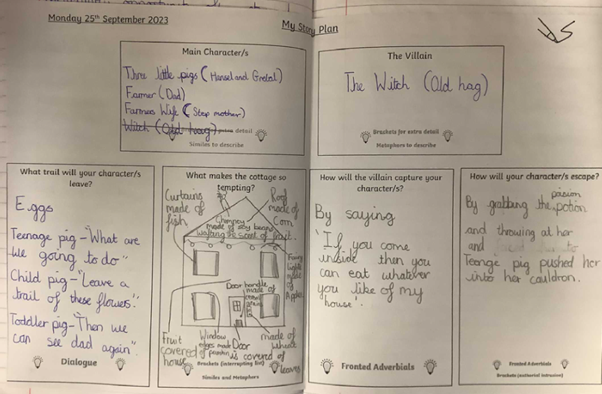 Monday 25th September 2023
My Story Plan
Main Character/s
Three little pigs (Hansel and Gretal)
Farmer (Dad)
Farmers Wife (Step mother)
Witch (Old hag)
detail
Similes to describe
The Villain
The Witch (Old hag)
Brackets for extra detail
Metaphors to describe
What trail will your character/s leave?
Eggs
Teenage pig-"What are
we going to do"
Child pig-"Leave a
trail of these flowers."
Toddler pig-"Then we
can see dad again".
Dialogue
What makes the cottage so
tempting?
Curtains
made of
fish
Roof
made of
Corn
Chimney
made of soy beans
wafting the scent of fruit.
Fairy
lights
made of
Apples
Door handle
made of
Fruit
covered
house
Window
edges made
of
Door
is covered of
leaves
made of
Brackets (interrupting)
Similes and Metaphors
How will the villain capture your
character/s?
By saying
'If you come
inside then you
can eat whatever
you like of my
house'.
Fronted Adverbials
How will your character/s escape?
By grabbing the potion
and throwing at her
and
Teenge pig pushed her
into her cauldron.
Fronted Adverbials
Brackets (authorial intrusion)